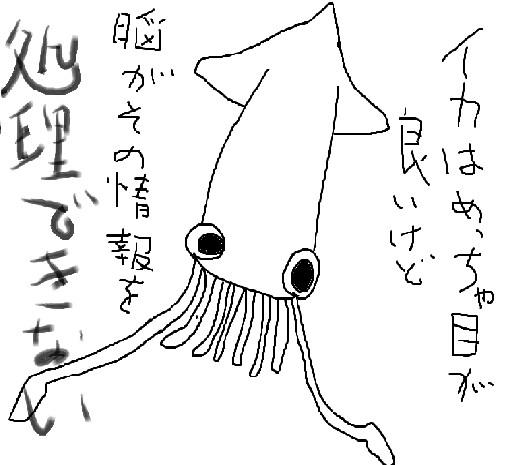 イカはめっちゃ目が
良いけど
脳がその情報を
処理できない